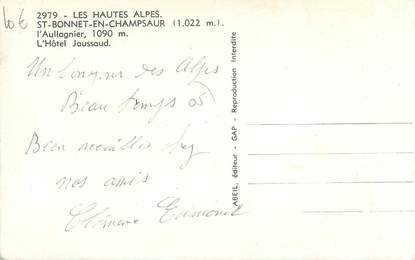 10€
2979 - LES HAUTES ALPES.
ST-BONNET-EN-CHAMPSAUR (1.022 m.)
l'Aullagnier, 1090 m.
L'Hôtel Jaussaud.
Un bonjour des Alpes
Beau temps
Bien accueillis chez
nos amis
Edmond
ABEIL, éditeur - GAP - Reproduction Interdite